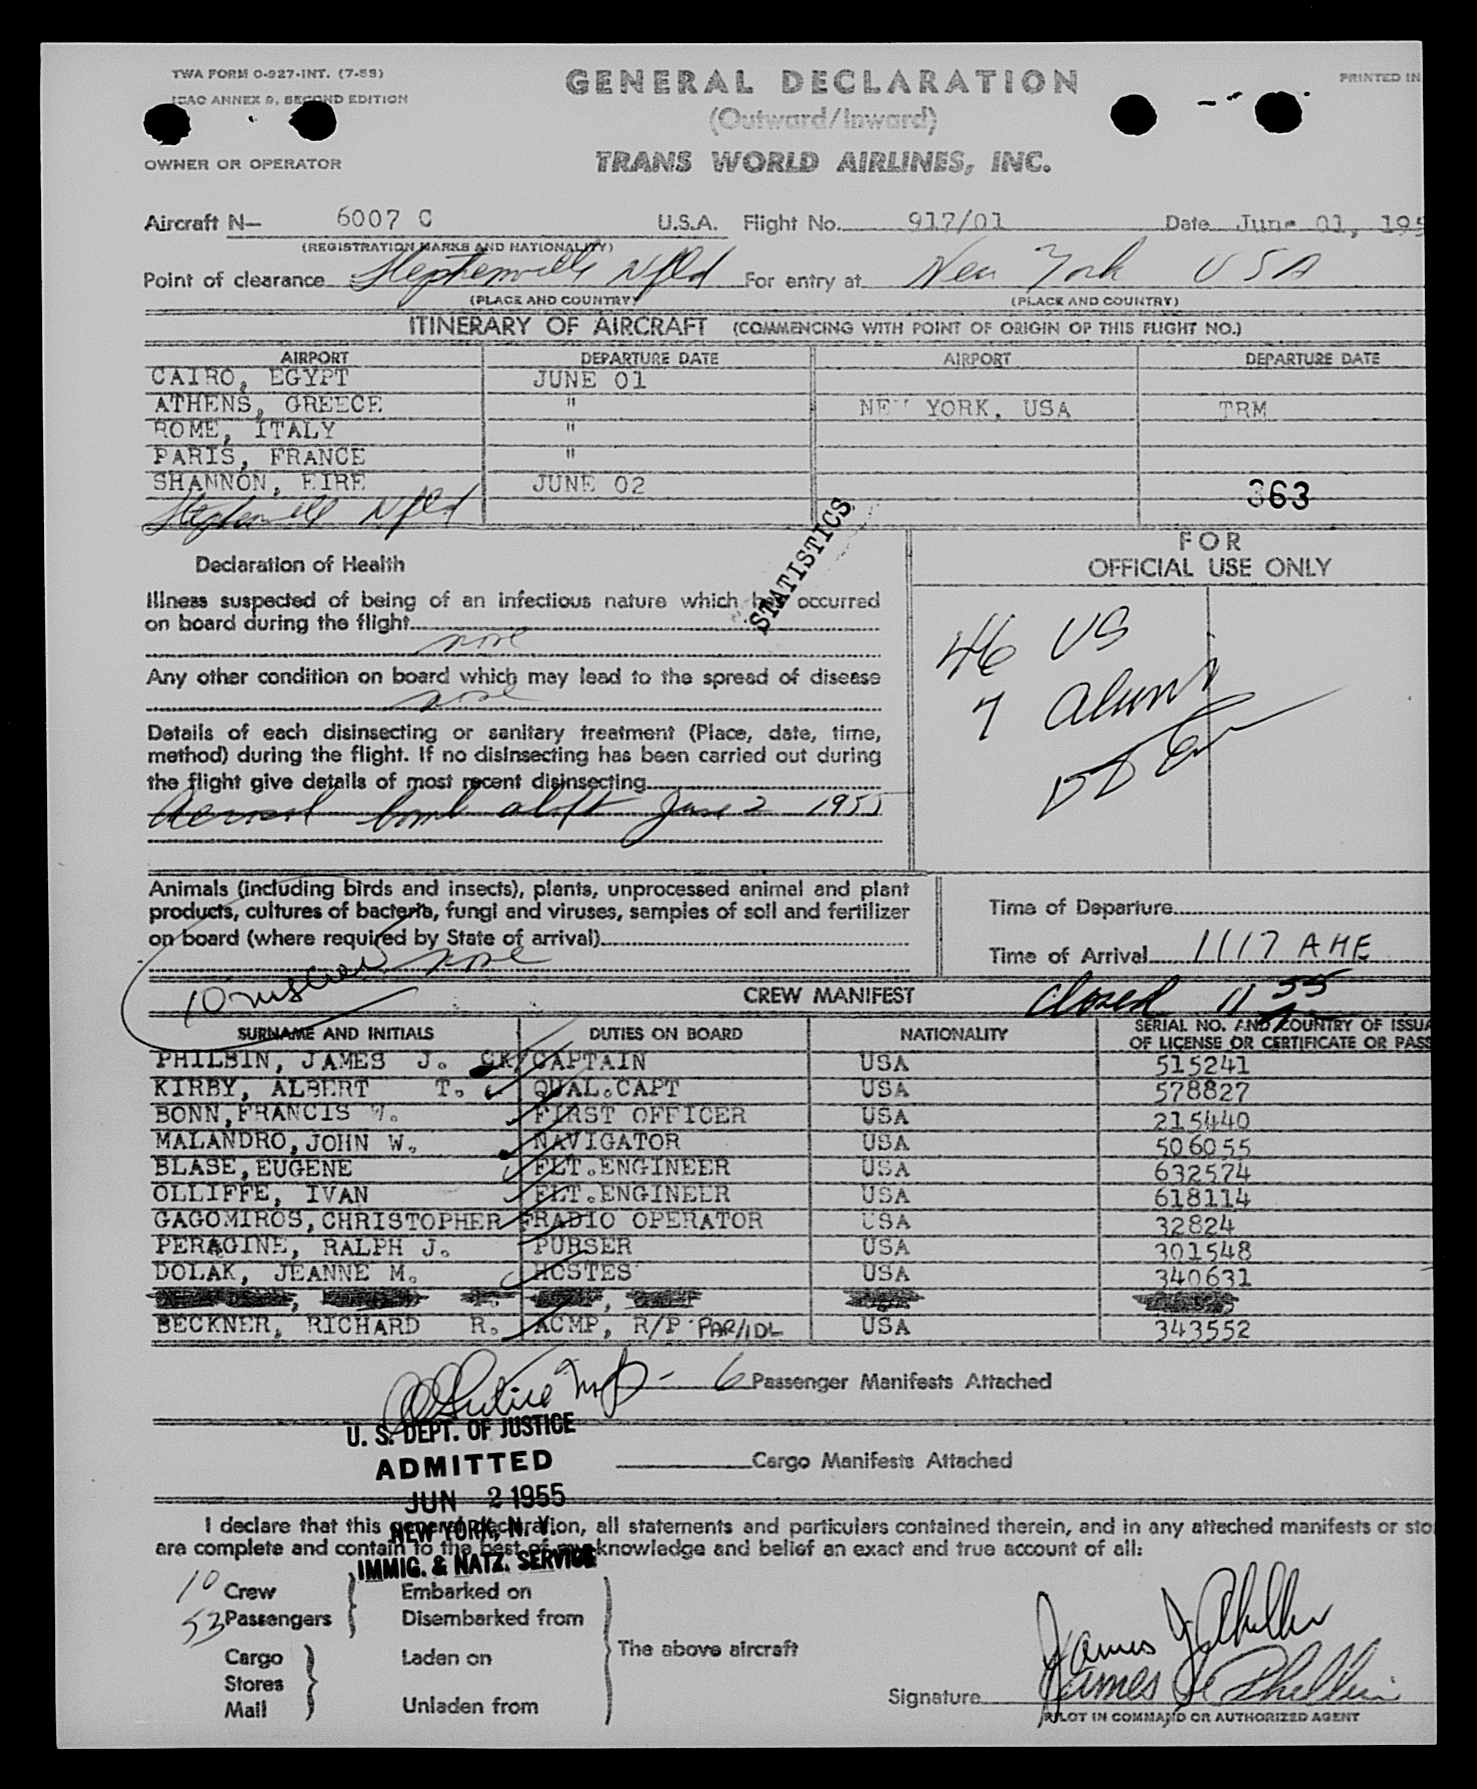 TWA FORM O-927-INT. (7-53)
ICAO ANNEX 9, SECOND EDITION
GENERAL DECLARATION
PRINTED IN
(Outward/Inward)
OWNER OR OPERATOR
TRANS WORLD AIRLINES, INC.
Aircraft N— 6007 C U.S.A. Flight No. 917/01 Date June 01, 195
(REGISTRATION MARKS AND NATIONALITY)
Point of clearance Stephenville Nfld For entry at New York USA
(PLACE AND COUNTRY) (PLACE AND COUNTRY)
ITINERARY OF AIRCRAFT (COMMENCING WITH POINT OF ORIGIN OF THIS FLIGHT NO.)
AIRPORT DEPARTURE DATE AIRPORT DEPARTURE DATE
CAIRO, EGYPT JUNE 01
ATHENS, GREECE " NEW YORK, USA TRM
ROME, ITALY "
PARIS, FRANCE "
SHANNON, EIRE JUNE 02
363
Stephenville Nfld
STATISTICS
FOR
OFFICIAL USE ONLY
Declaration of Health
Illness suspected of being of an infectious nature which has occurred
on board during the flight
none
Any other condition on board which may lead to the spread of disease
none
46 US
7 Aliens
Details of each disinsecting or sanitary treatment (Place, date, time,
method) during the flight. If no disinsecting has been carried out during
the flight give details of most recent disinsecting
Aerosol bomb aloft June 2 1955
Animals (including birds and insects), plants, unprocessed animal and plant
products, cultures of bacteria, fungi and viruses, samples of soil and fertilizer
on board (where required by State of arrival)
none
Time of Departure
Time of Arrival 1117 AHE
10 crew
CREW MANIFEST
Closed 11 55
SURNAME AND INITIALS DUTIES ON BOARD NATIONALITY SERIAL NO. AND COUNTRY OF ISSUA
OF LICENSE OR CERTIFICATE OR PASS
PHILBIN, JAMES J. CK/CAPTAIN USA 515241
KIRBY, ALBERT T. QUAL.CAPT USA 578827
BONN,FRANCIS W. FIRST OFFICER USA 215440
MALANDRO,JOHN W. NAVIGATOR USA 506055
BLASE,EUGENE FLT.ENGINEER USA 632574
OLLIFFE, IVAN FLT.ENGINEER USA 618114
GAGOMIROS,CHRISTOPHER F RADIO OPERATOR USA 32824
PERAGINE, RALPH J. PURSER USA 301548
DOLAK, JEANNE M. HOSTES USA 340631
BECKNER, RICHARD R. ACMP, R/P PAR/IDL USA 343552
6 Passenger Manifests Attached
U. S. DEPT. OF JUSTICE
ADMITTED
Cargo Manifests Attached
JUN 2 1955
NEW YORK, N. Y.
IMMIG. & NATZ. SERVICE
I declare that this general declaration, all statements and particulars contained therein, and in any attached manifests or sto
are complete and contain to the best of my knowledge and belief an exact and true account of all:
10 Crew Embarked on
53 Passengers Disembarked from
The above aircraft
Cargo Laden on
Stores
Mail Unladen from
James J Philbin
Signature James J Philbin
PILOT IN COMMAND OR AUTHORIZED AGENT